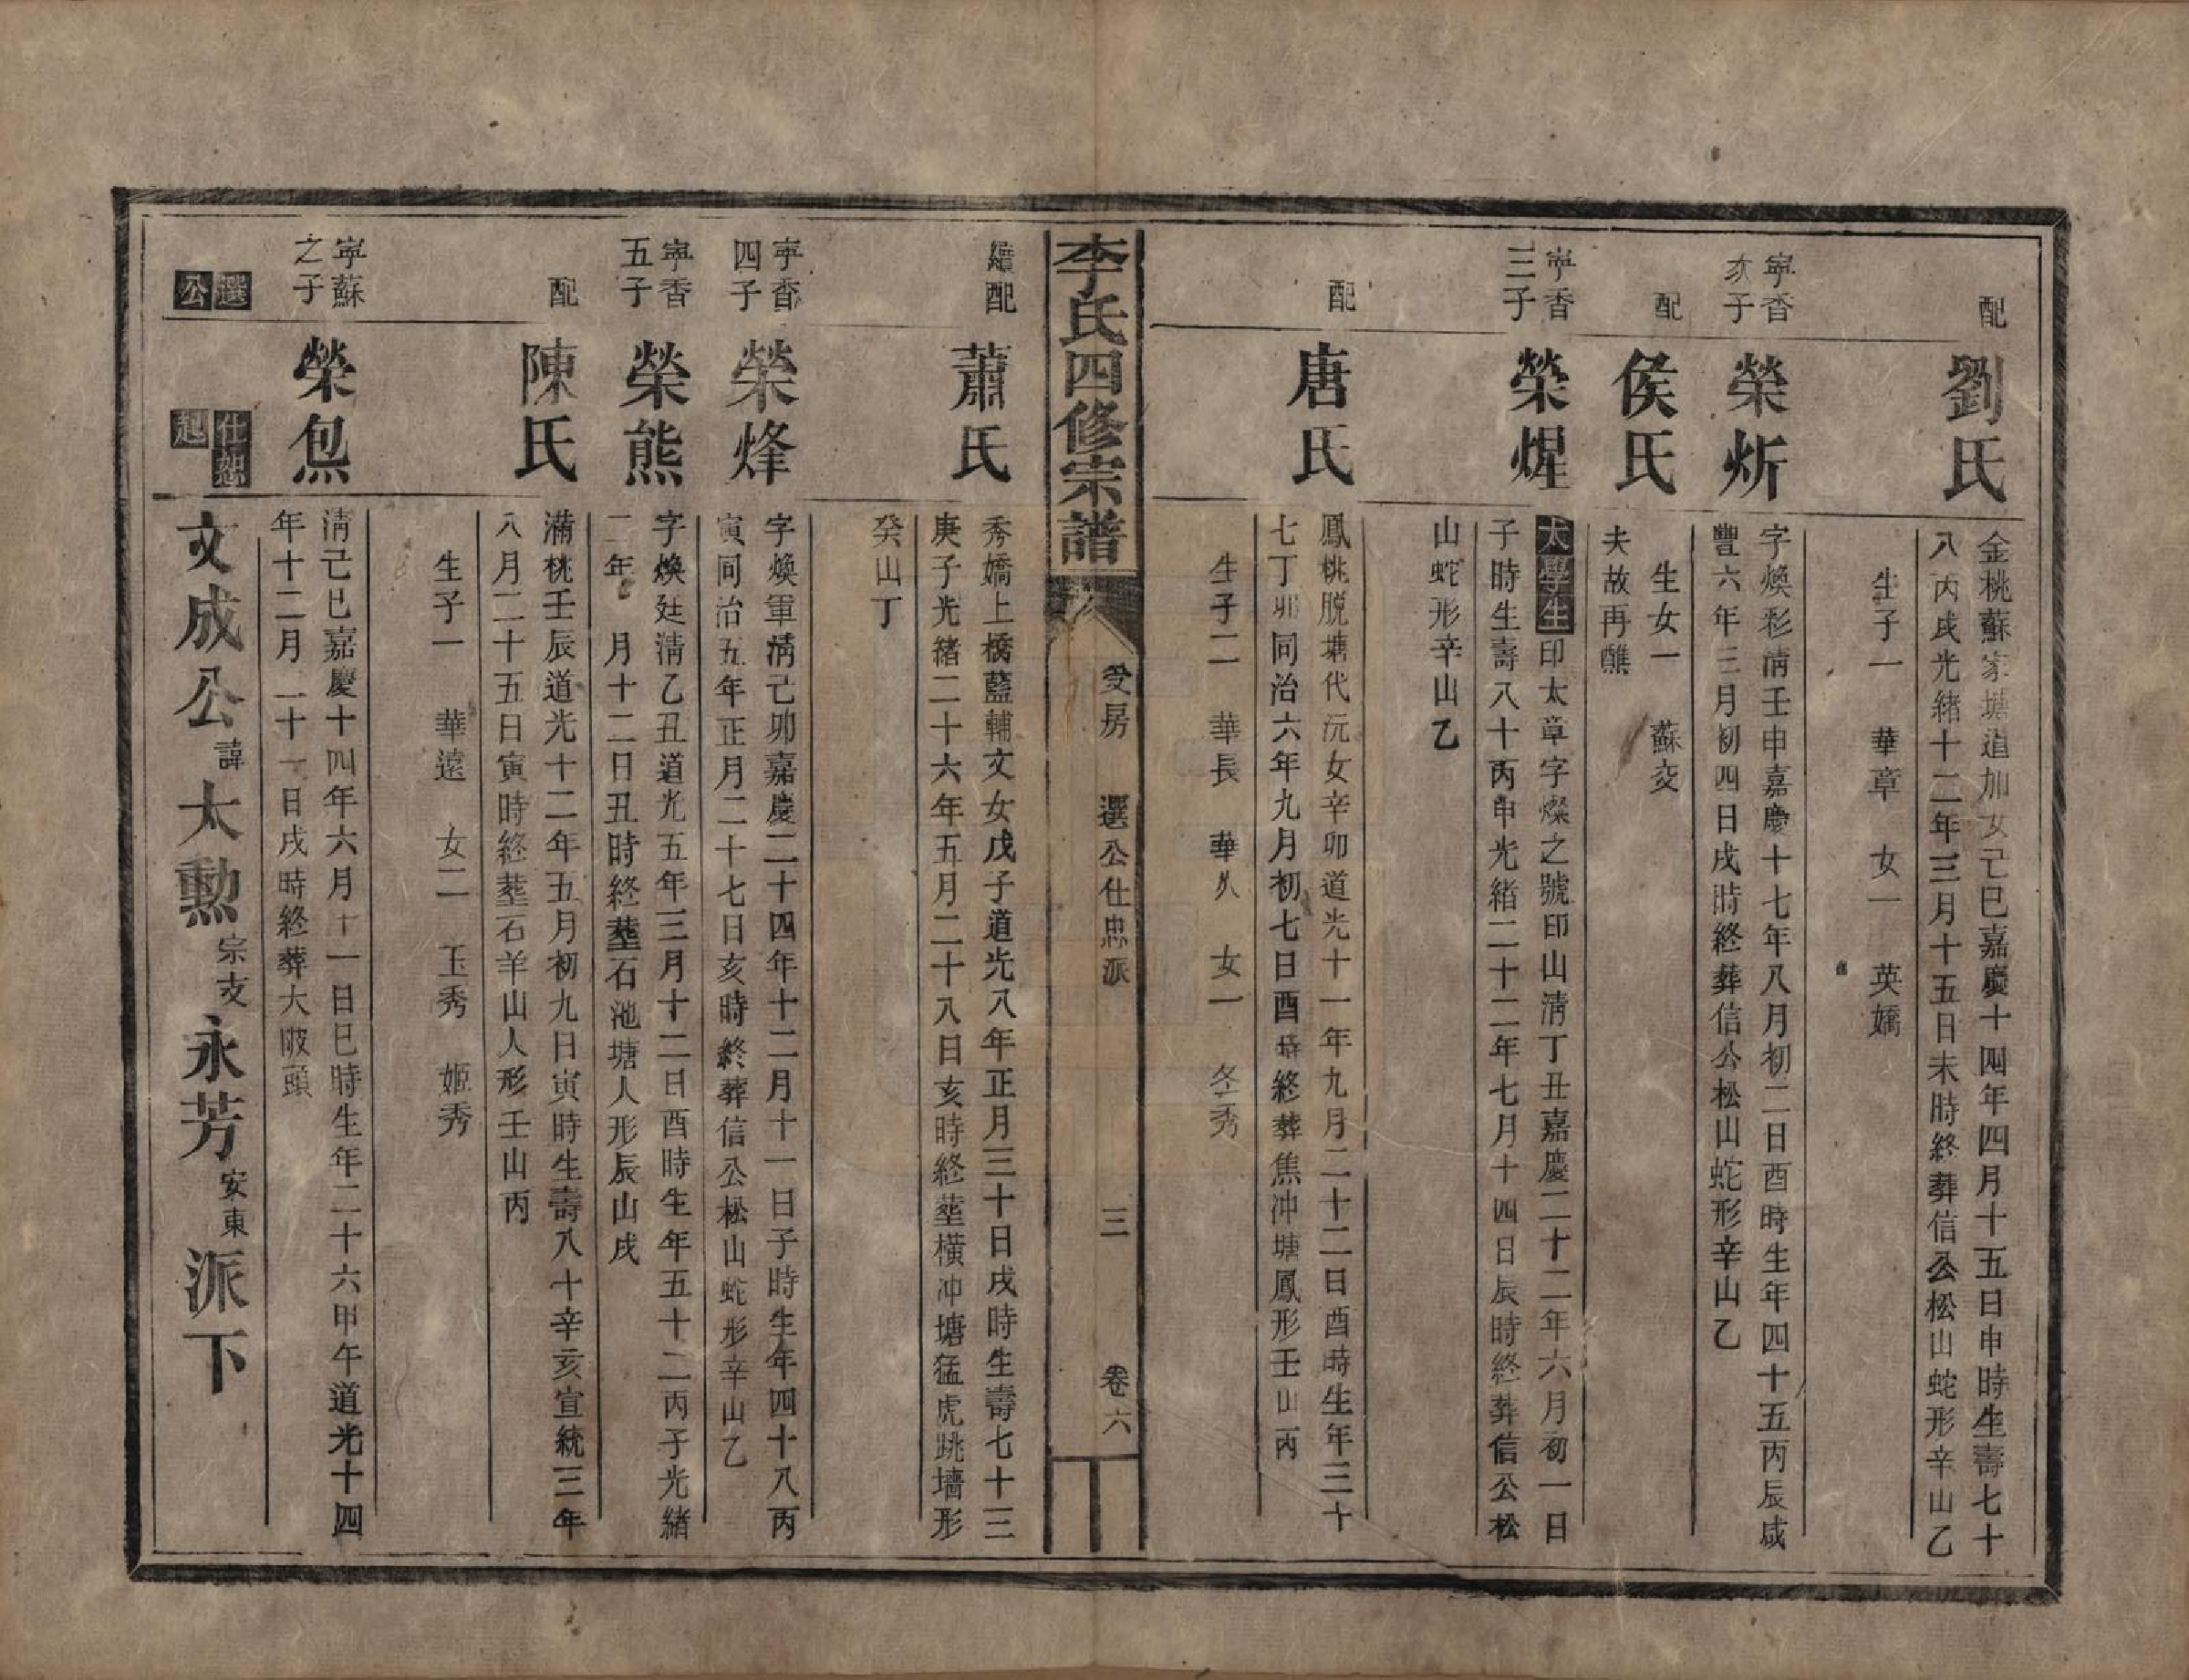 配
劉氏
金桃蘇家塘道加女己巳嘉慶十四年四月十五日申時生壽七十
八丙戌光緒十二年三月十五日未時終葬信公松山蛇形辛山乙
生子一　華章　女一　英嬌
寧香
次子
榮炘
字煥彩清壬申嘉慶十七年八月初二日酉時生年四十五丙辰咸
豐六年三月初四日戌時終葬信公松山蛇形辛山乙
配
侯氏
生女一　蘇姣
夫故再醮
寧香
三子
榮煋
太學生印太章字燦之號印山清丁丑嘉慶二十二年六月初一日
子時生壽八十丙申光緒二十二年七月十四日辰時終葬信公松
山蛇形辛山乙
配
唐氏
鳳桃脱塘代沅女辛卯道光十一年九月二十二日酉時生年三十
七丁卯同治六年九月初七日酉時終葬焦冲塘鳳形壬山丙
生子二　華長　華久　女一　冬秀
李氏四修宗譜
受房　選公仕忠派　三　卷六
續配
蕭氏
秀嬌上橋藍輔文女戊子道光八年正月三十日戌時生壽七十三
庚子光緒二十六年五月二十八日亥時終塟橫冲塘猛虎跳墻形
癸山丁
寧香
四子
榮烽
字煥軍清己卯嘉慶二十四年十二月十一日子時生年四十八丙
寅同治五年正月二十七日亥時終葬信公松山蛇形辛山乙
寧香
五子
榮熊
字煥廷清乙丑道光五年三月十二日酉時生年五十二丙子光緒
二年　月十二日丑時終塟石池塘人形辰山戌
配
陳氏
滿桃壬辰道光十二年五月初九日寅時生壽八十辛亥宣統三年
八月二十五日寅時終塟石羊山人形壬山丙
生子一　華遠　女二　玉秀　姬秀
寧蘇
之子
榮炰
清己巳嘉慶十四年六月十一日巳時生年二十六甲午道光十四
年十二月二十一日戌時終葬大陂頭
選公
仕恕
起
文成公諱太勳宗支永芳安東派下